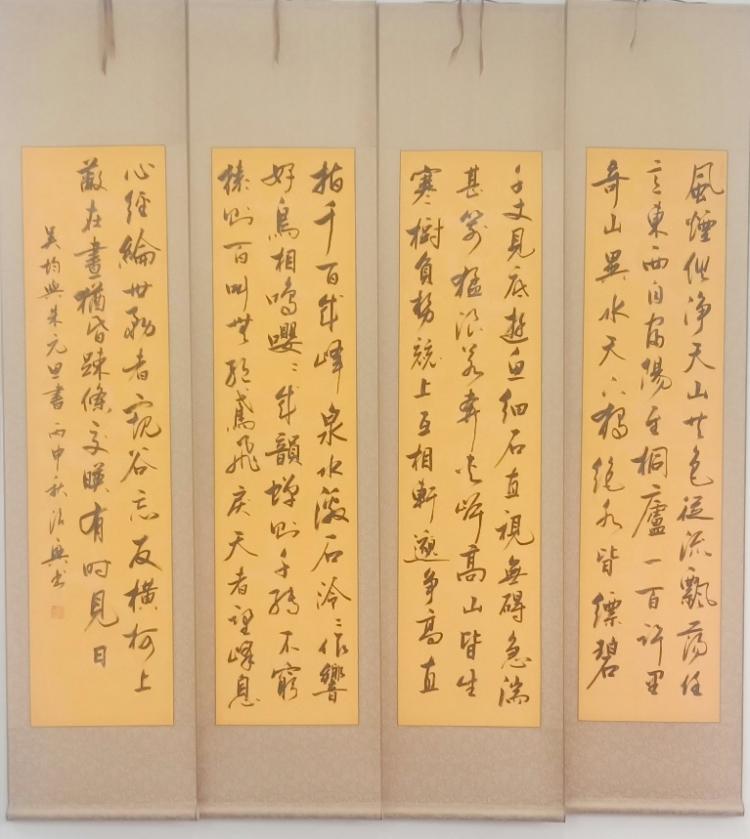 風煙俱淨天山共色從流飄蕩任
意東西自富陽至桐廬一百許里
奇山異水天下獨絕水皆縹碧
千丈見底遊魚細石直視無礙急湍
甚箭猛浪若奔夹岸高山皆生
寒樹負勢競上互相軒邈争高直
指千百成峰泉水激石泠〻作響
好鳥相鳴嚶〻成韻蟬則千轉不窮
猿則百叫無絕鳶飛戾天者望峰息
心經綸世務者窺谷忘反橫柯上
蔽在晝猶昏疎條交映有時見日
吴均與朱元思書 丙申秋 書